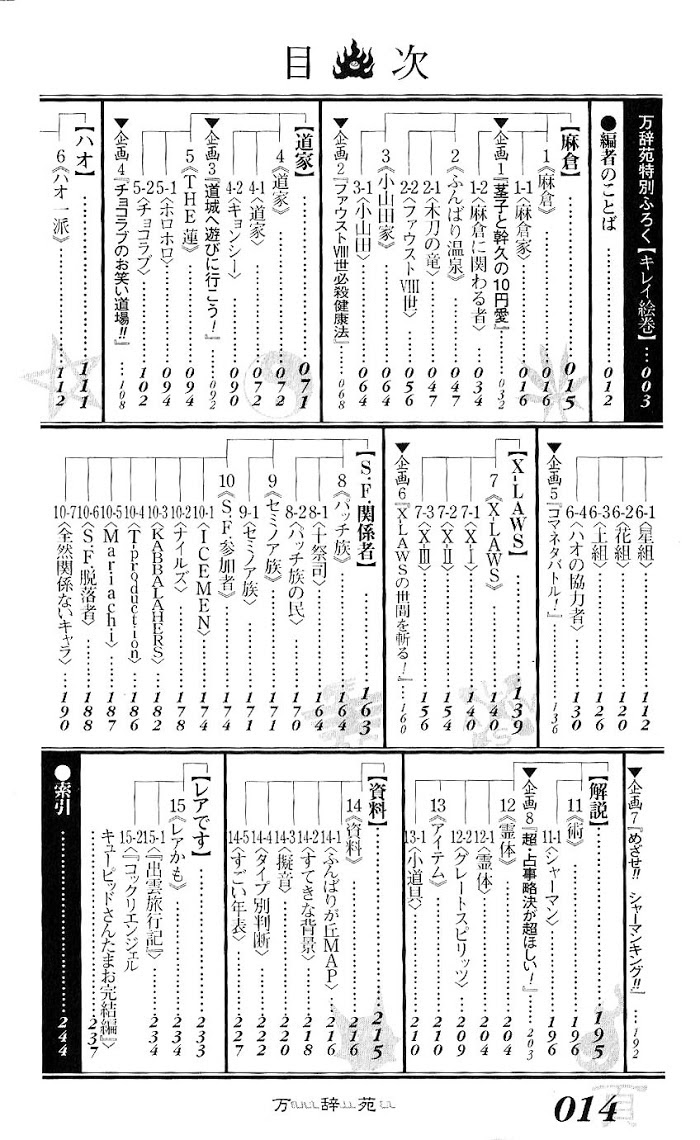 目次
万辞苑特別ふろく【キレイ絵巻】…003
●編者のことば……………012
【麻倉】……………015
1《麻倉》……………016
1-1〈麻倉家〉……………016
1-2〈麻倉に関わる者〉………034
▼企画1『茎子と幹久の10円愛』……032
2《ふんばり温泉》………047
2-1〈木刀の竜〉………047
2-2〈ファウストⅧ世〉………056
3《小山田家》………064
3-1〈小山田〉………064
▼企画2『ファウストⅧ世必殺健康法』……068
【道家】……………071
4《道家》……………072
4-1〈道家〉……………072
4-2〈キョンシー〉………090
▼企画3『道城へ遊びに行こう!』……092
5《THE蓮》………094
5-1〈ホロホロ〉………094
5-2〈チョコラブ〉………102
▼企画4『チョコラブのお笑い道場!!』……108
【ハオ】……………111
6《ハオ一派》………112
6-1〈星組〉………112
6-2〈花組〉………120
6-3〈土組〉………126
6-4〈ハオの協力者〉………130
▼企画5『コマネタバトル!』……136
【X-LAWS】………139
7《X-LAWS》………140
7-1〈X-Ⅰ〉………140
7-2〈X-Ⅱ〉………154
7-3〈X-Ⅲ〉………156
▼企画6『X-LAWSの世間を斬る!』……160
【S.F.関係者】………163
8《パッチ族》………164
8-1〈十祭司〉………164
8-2〈パッチ族の民〉………170
9《セミノア族》………171
9-1〈セミノア族〉………171
10《S.F.参加者》………174
10-1〈ICEMEN〉………174
10-2〈ナイルズ〉………178
10-3〈KABBALAHERS〉………182
10-4〈Tproduction〉………186
10-5〈Mariachi〉………187
10-6〈S.F.脱落者〉………188
10-7〈全然関係ないキャラ〉………190
▼企画7『めざせ!! シャーマンキング!!』……192
【解説】………195
11《術》………196
11-1〈シャーマン〉………196
▼企画8『超・占事略決が超ほしい!』……203
12《霊体》………204
12-1〈霊体〉………204
12-2〈グレートスピリッツ〉………209
13《アイテム》………210
13-1〈小道具〉………210
【資料】………215
14《資料》………216
14-1〈ふんばりが丘MAP〉………216
14-2〈すてきな背景〉………218
14-3〈擬音〉………220
14-4〈タイプ別判断〉………222
14-5〈すごい年表〉………227
【レアです】………233
15《レアかも》………234
15-1〈『出雲旅行記』〉………234
15-2〈『コックリエンジェル
キューピッドさんたまお完結編』〉………237
●索引………244
万辞苑
014